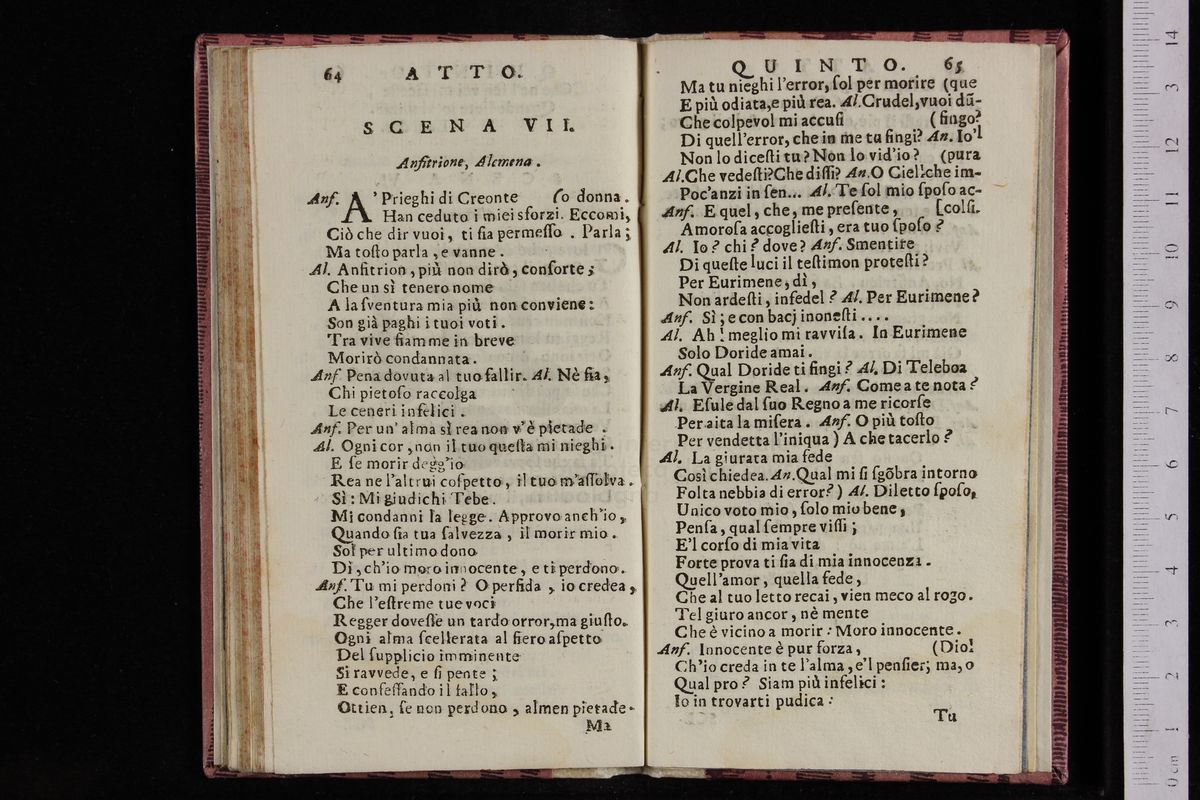 64 ATTO.
SCENA VII.
Anfitrione, Alcmena.
Anf. A' Prieghi di Creonte (o donna.
Han ceduto i miei sforzi. Eccomi,
Ciò che dir vuoi, ti ſia permeſſo. Parla;
Ma toſto parla, e vanne.
Al. Anfitrion, più non dirò, conſorte;
Che un sì tenero nome
A la ſventura mia più non conviene:
Son già paghi i tuoi voti.
Tra vive fiamme in breve
Morirò condannata.
Anf. Pena dovuta al tuo fallir. Al. Nè fia,
Chi pietoſo raccolga
Le ceneri infelici.
Anf. Per un' alma sì rea non v'è pietade.
Al. Ogni cor, non il tuo queſta mi nieghi.
E ſe morir degg'io
Rea ne l'altrui coſpetto, il tuo m'aſſolva.
Sì: Mi giudichi Tebe.
Mi condanni la legge. Approvo anch'io,
Quando ſia tua ſalvezza, il morir mio.
Sol per ultimo dono
Di, ch'io moro innocente, e ti perdono.
Anf. Tu mi perdoni? O perfida, io credea,
Che l'eſtreme tue voci
Regger doveſſe un tardo orror, ma giuſto.
Ogni alma ſcellerata al fiero aſpetto
Del ſupplicio imminente
Si ravvede, e ſi pente;
E confeſſando il fallo,
Ottien, ſe non perdono, almen pietade.
Ma
QUINTO. 65
Ma tu nieghi l'error, ſol per morire (que
E più odiata, e più rea. Al. Crudel, vuoi dũ-
Che colpevol mi accuſi (fingo?
Di quell'error, che in me tu fingi? An. Io'l
Non lo diceſti tu? Non lo vid'io? (pura
Al. Che vedeſti? Che diſſi? An. O Ciel! che im-
Poc'anzi in ſen... Al. Te ſol mio ſpoſo ac-
Anf. E quel, che, me preſente, [colſi.
Amoroſa accoglieſti, era tuo ſpoſo?
Al. Io? chi? dove? Anf. Smentire
Di queſte luci il teſtimon proteſti?
Per Eurimene, dì,
Non ardeſti, infedel? Al. Per Eurimene?
Anf. Sì; e con bacj inoneſti....
Al. Ah! meglio mi ravviſa. In Eurimene
Solo Doride amai.
Anf. Qual Doride ti fingi? Al. Di Teleboa
La Vergine Real. Anf. Come a te nota?
Al. Eſule dal ſuo Regno a me ricorſe
Per aita la miſera. Anf. O più toſto
Per vendetta l'iniqua) A che tacerlo?
Al. La giurata mia fede
Così chiedea. An. Qual mi ſi ſgõbra intorno
Folta nebbia di error?) Al. Diletto ſpoſo,
Unico voto mio, ſolo mio bene,
Penſa, qual ſempre viſſi;
E'l corſo di mia vita
Forte prova ti ſia di mia innocenza.
Quell'amor, quella fede,
Che al tuo letto recai, vien meco al rogo.
Tel giuro ancor, nè mente
Che è vicino a morir: Moro innocente.
Anf. Innocente è pur forza, (Dio!
Ch'io creda in te l'alma, e'l penſier; ma, o
Qual pro? Siam più infelici:
Io in trovarti pudica:
Tu
0 cm 1 2 3 4 5 6 7 8 9 10 11 12 13 14